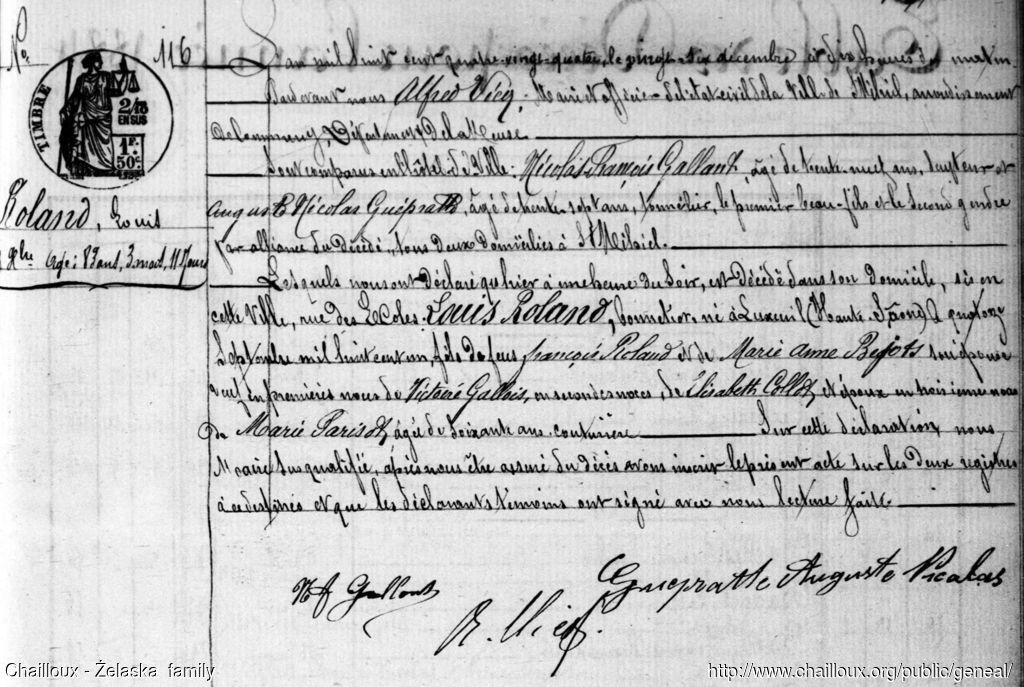 No. 116
TIMBRE
2/10
EN SUS
1F.
50c.
Roland, Louis
Age: 83 ans, 3 mois, 11 Jours
L'an mil huit cent quatre-vingt-quatre, le vingt-six décembre à dix heures du matin
Pardevant nous Alfred Vicq, Maire et officier de l'état civil de la Ville de St Mihiel, arrondissement
de Commercy, Département de la Meuse.
Sont comparus en l'hôtel de Ville: Nicolas François Gallant, âgé de trente-neuf ans, et
Auguste Nicolas Gueprath, âgé de trente-sept ans, tonnelier, le premier beau-fils et le second gendre
par alliance du décédé, tous deux domiciliés à St Mihiel.
Lesquels nous ont déclaré qu'hier à une heure du Soir, est décédé dans son domicile, sis en
cette Ville, rue des Ecoles, Louis Roland, bonnetier, né à Luxeuil (Haute-Saône) le quatorze
Septembre mil huit cent un, fils de feus françois Roland et de Marie Anne son épouse
veuf en premières noces de Victoire Gallois, en secondes noces, de Elisabeth Collot, et époux en troisième noces
de Marie Parisot, âgée de soixante ans, couturière Sur cette déclaration, nous
Maire susqualifié, après nous être assuré du décès avons inscrit le présent acte sur les deux registres
à ce destinés et que les déclarants témoins ont signé avec nous lecture faite.
Guepratte Auguste Nicolas
N f Gallant
A. Vicq.
Chailloux - Żelaska family
http://www.chailloux.org/public/geneal/